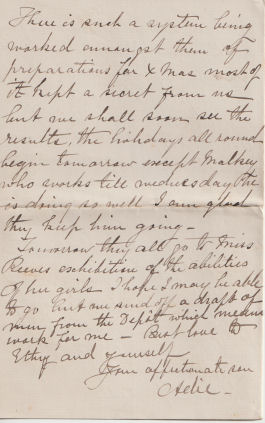 There is such a system being
worked amongst them of
preparations for Xmas most of
it kept a secret from us
but we shall soon see the
results, the holidays all round
begin tomorrow except
who works till wednesday. He
is doing so well I am glad
they keep him going —
Tomorrow they all go to Miss
Reeves exhibition of the abilities
of her girls I hope I may be able
to go but we send off a draft of
men from the Depôt which means
work for me — Best love to
Ethy and yourself
Your affectionate son